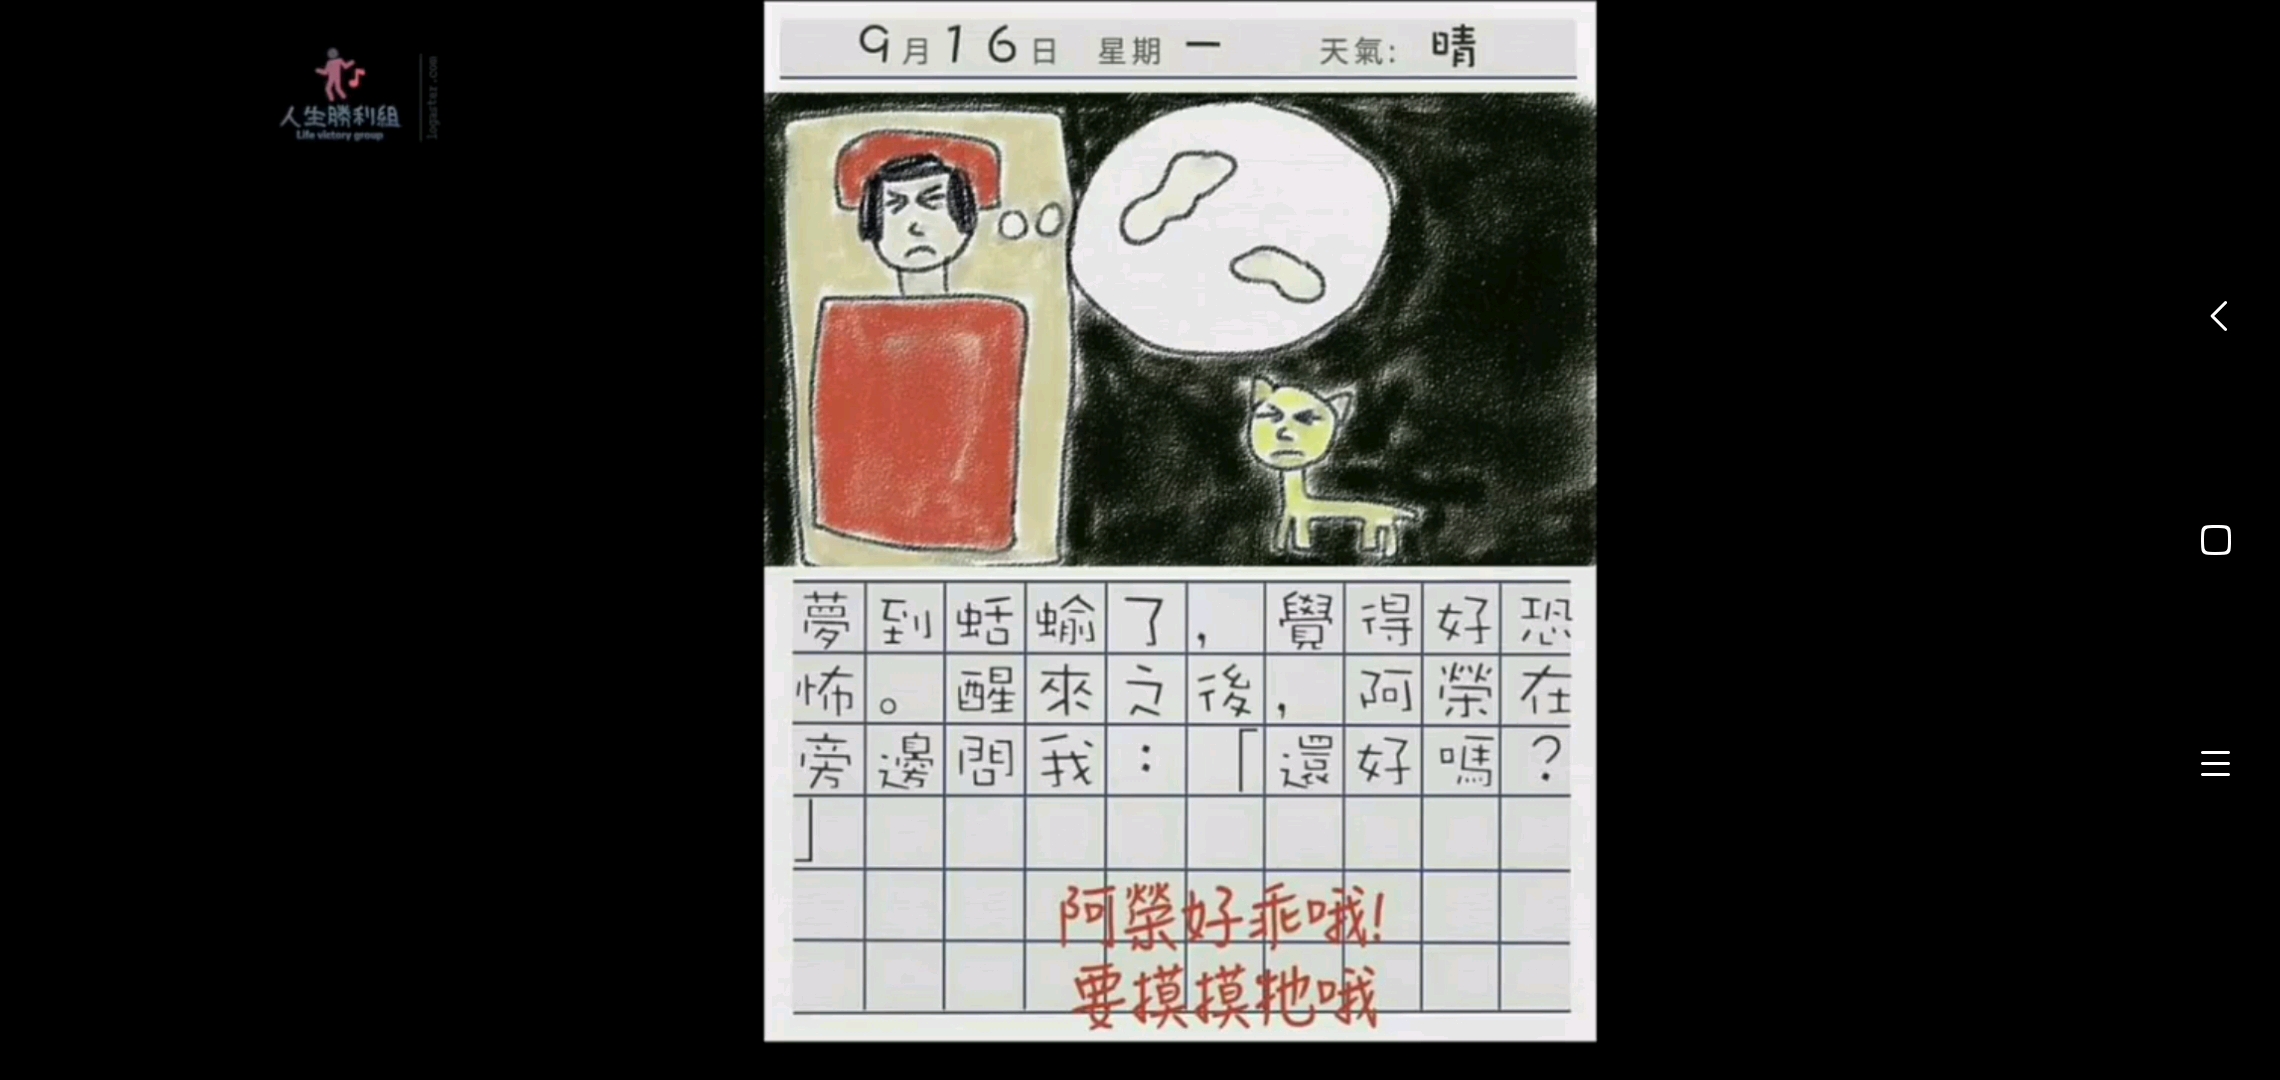 人生勝利組
Life victory group
logaster.com
9月16日 星期一 天氣: 晴
夢到蛞蝓了，覺得好恐
怖。醒來之後，阿榮在
旁邊問我：「還好嗎？
」
阿榮好乖哦!
要摸摸牠哦